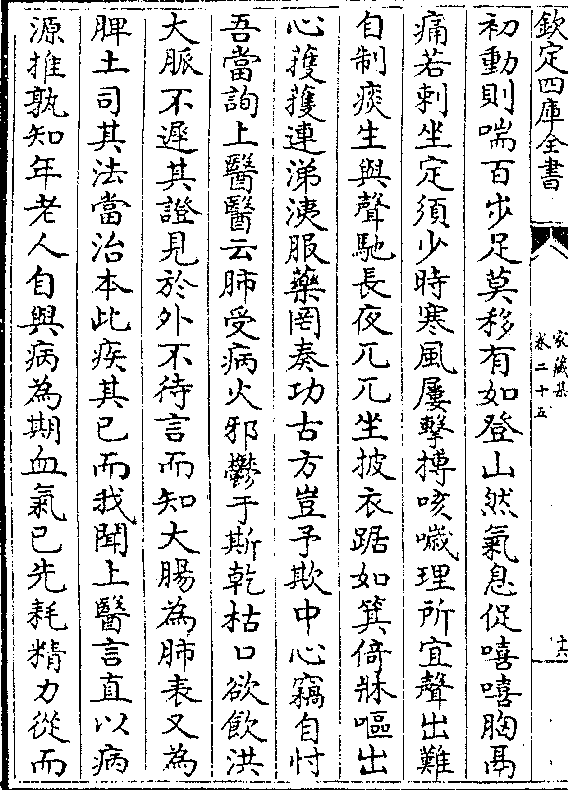 欽定四庫全書
家藏集
卷二十五
初動則喘百步足莫移有如登山然氣息促嘻嘻胸鬲
痛若刺坐定須少時寒風屢擊搏咳嘁理所宜聲出難
自制痰生與聲馳長夜兀兀坐披衣踞如箕倚牀嘔出
心擭擭連涕洟服藥罔奏功古方豈予欺中心竊自忖
吾當詢上醫醫云肺受病火邪鬱于斯乾枯口欲飲洪
大脈不遲其證見於外不待言而知大腸為肺表又為
脾土司其法當治本此疾其已而我聞上醫言直以病
源推孰知年老人自與病為期血氣已先耗精力從而